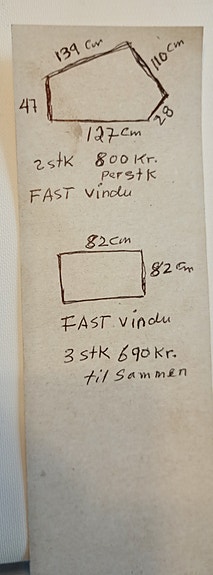 139 cm
110 cm
47
28
127 cm
2 stk 800 Kr.
per stk
FAST vindu
82 cm
82 cm
FAST vindu
3 stk 690 Kr.
til Sammen